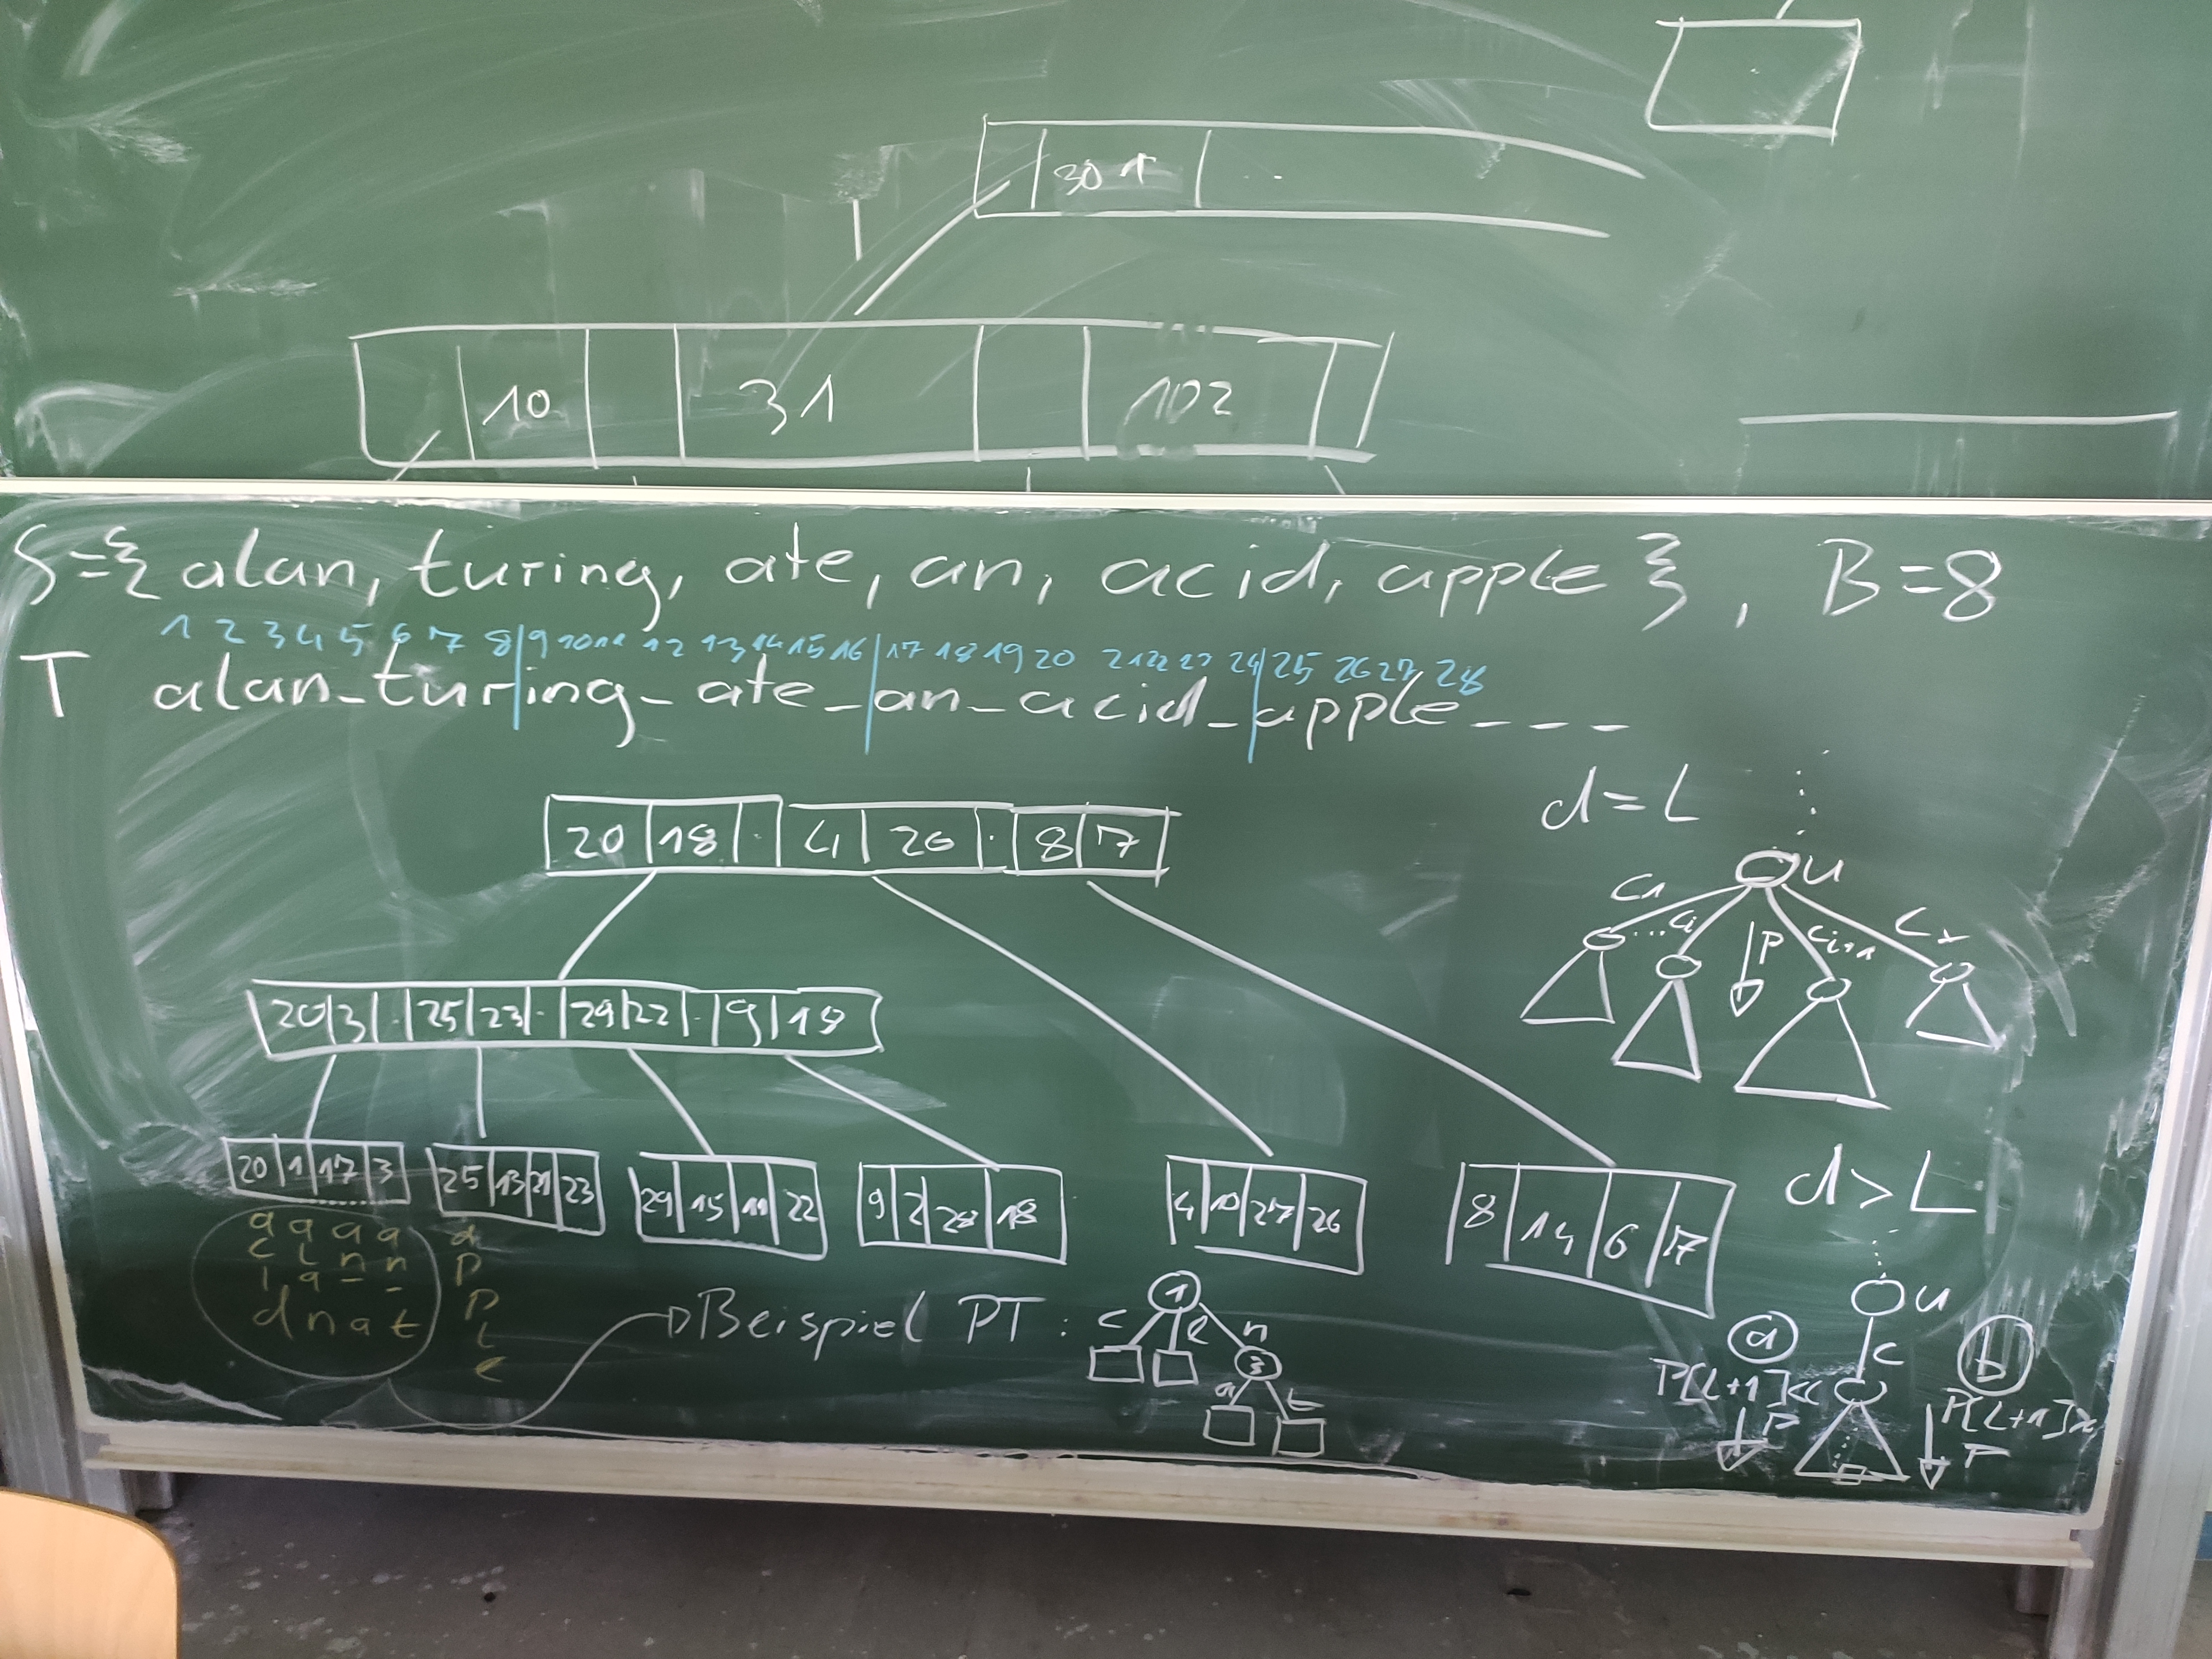 301 ..
10 31 102
S={ alan, turing, ate, an, acid, apple }, B=8
1 2 3 4 5 6 7 8 9 10 11 12 13 14 15 16 17 18 19 20 21 22 23 24 25 26 27 28
T alan_turing_ate_an_acid_apple_ _ _
20 18 . 4 26 . 8 17
20 3 . 25 23 . 29 22 . 9 18
20 1 17 3
25 13 21 23
29 15 11 22
9 2 28 18
4 10 27 26
8 14 6 17
a a a a a
c l n n p
i a _ _ p
d n a t l
e
Beispiel PT :
1
c l n
3
a t
d=L
u
c1 ...ci P ci+1
d>L
u
a c b
P[L+1]<c
P
P[L+1]>
P